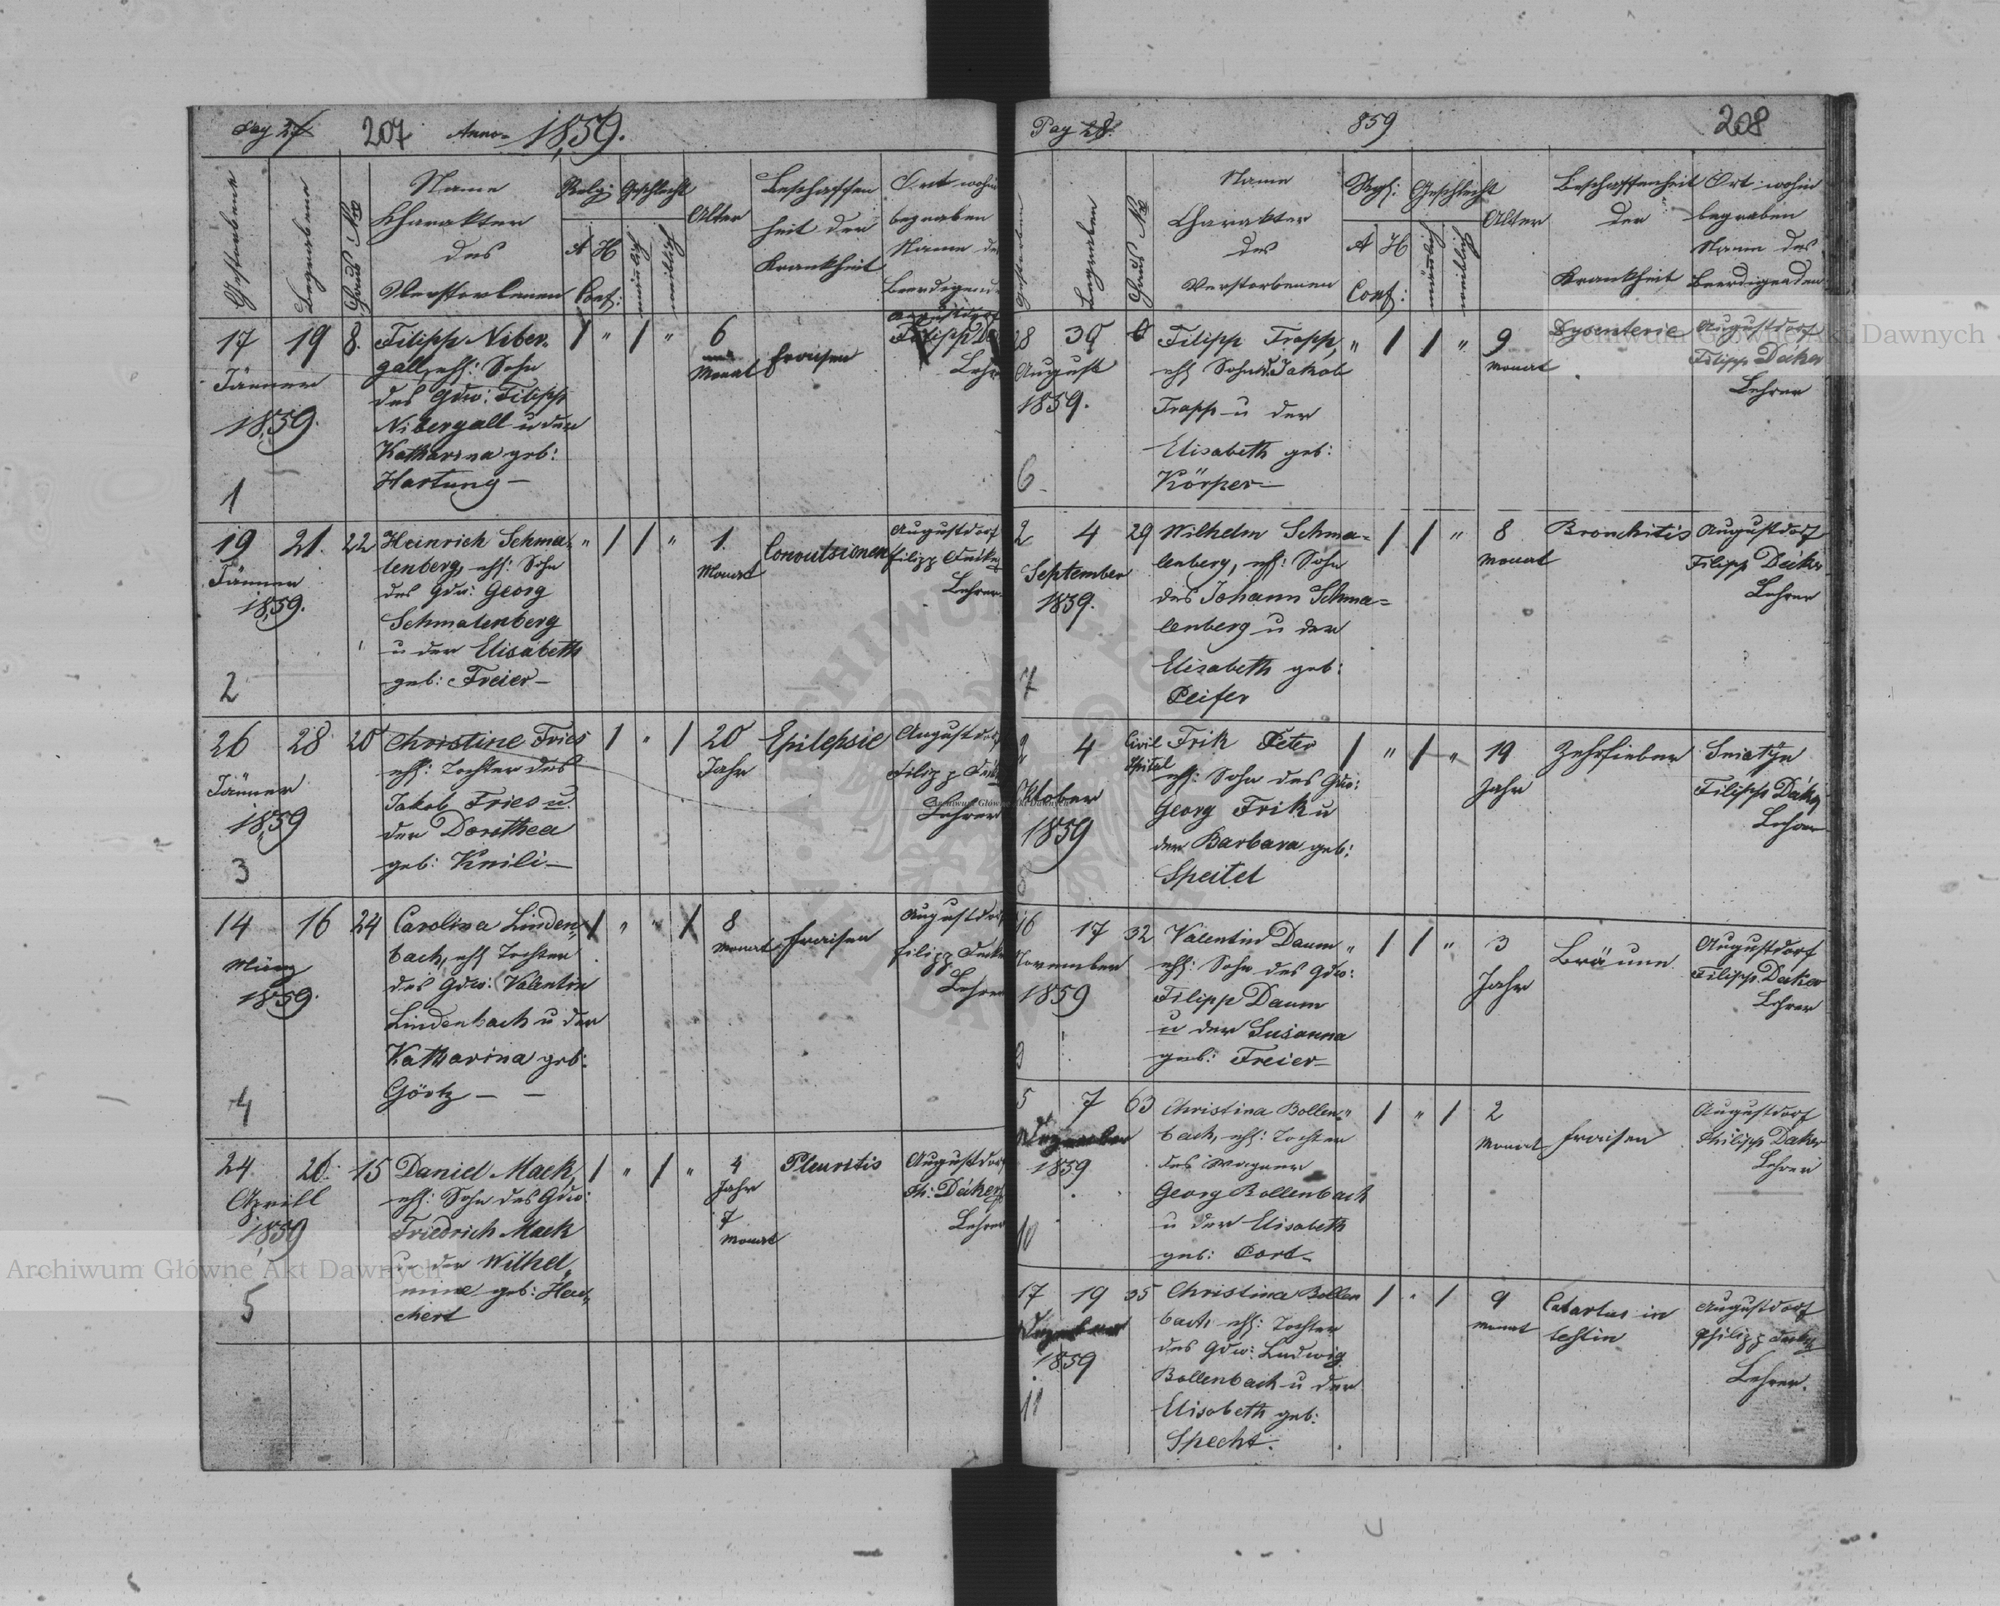 Pag 27 207 Anno 1859.
Gestorbene
Begrabene
Haus Nro
Name
Charakter
des
Verstorbenen
Relig:
A H
Conf:
Geschlecht
männlich
weiblich
Alter
Beschaffen
heit der
Krankheit
Ort wohin
begraben
Name des
17 19 8. Filipp Niber- / " / " 6
gall, ehl: Sohn
Monat Fraisen
Jänner
des Gdw: Filipp
1859.
Nibergall u der
Katharina geb:
Hartung —
1
Augustdorf
Filipp
Lehr
19 21. 22 Heinrich Schma- " / / " 1. Convulsionen
Jänner
lenberg, ehl: Sohn
Monat
1859.
des Gdw: Georg
Schmalenberg
u der Elisabeth
geb: Freier —
2
Augustdorf
Filipp Deker
Lehrer
26 28 20 Christine Fries / " / 20 Epilepsie
Jänner
ehl: Tochter des
Jahr
1859
Jakob Fries u
der Dorothea
geb: Knili —
3
Augustdorf
Filipp
Lehrer
14 16 24 Carolina Linden- / " " / 8
März
bach, ehl Tochter
Monat Fraisen
1859.
des Gdw: Valentin
Lindenbach u der
Katharina geb:
Görtz — —
4
Augustdorf
Filipp Deker
Lehrer
24 26. 15 Daniel Mack, / " / " 4 Pleuritis
Aprill
ehl: Sohn des Gdw:
Jahr
7
Monat
1859
Friedrich Mack
u der Wilhel-
mine geb: Heu-
chert
5
Augustdorf
Ph: Däker
Lehrer
Pag 28. 859 208
Gestorben
Begraben
Haus Nro
Name
Charakter
des
Verstorbenen
A H
Conf:
Geschlecht
männlich
weiblich
Alter
Beschaffenheit
der
Krankheit
Ort wohin
begraben
Name des
Beerdigenden
28 30 Filipp Trapp, " / / " 9 Dysenterie
August
ehl Sohn d Jakob
Monat
1859.
Trapp u der
Elisabeth geb:
Körper —
6
Augustdorf
Filipp Däker
Lehrer
2 4 29 Wilhelm Schma- " / / " 8 Bronchitis
September
lenberg, ehl: Sohn
Monat
1859.
des Johann Schma-
lenberg u der
Elisabeth geb:
Peifer
7
Augustdorf
Filipp Däker
Lehrer
2 4 Civil Spital Frik Peter / " / " 19 Zehrfieber
Oktober
ehl: Sohn des Gdw:
Jahr
1859
Georg Frik u
der Barbara geb:
Speitel
8
Sniatyn
Filipp Däker
Lehrer
16 17 32 Valentin Daum " / / " 3 Bräune
November
ehl: Sohn des Gdw:
Jahr
1859
Filipp Daum
u der Susanna
geb: Freier —
9
Augustdorf
Filipp Däker
Lehrer
5 7 63 Christina Bollen- " / " / 2
Dezember
bach, ehl: Tochter
Monat Fraisen
1859
des Wagner
Georg Bollenbach
u der Elisabeth
geb: Port —
10
Augustdorf
Philipp Däker
Lehrer
17 19 35 Christina Bollen / " / 9
Dezember
bach ehl: Tochter
Monat
1859
des Gdw: Ludwig
Bollenbach u der
Elisabeth geb:
Specht.
11
Augustdorf
Philipp Deker
Lehrer.
Archiwum Główne Akt Dawnych
Archiwum Główne Akt Dawnych
Archiwum Główne Akt Dawnych